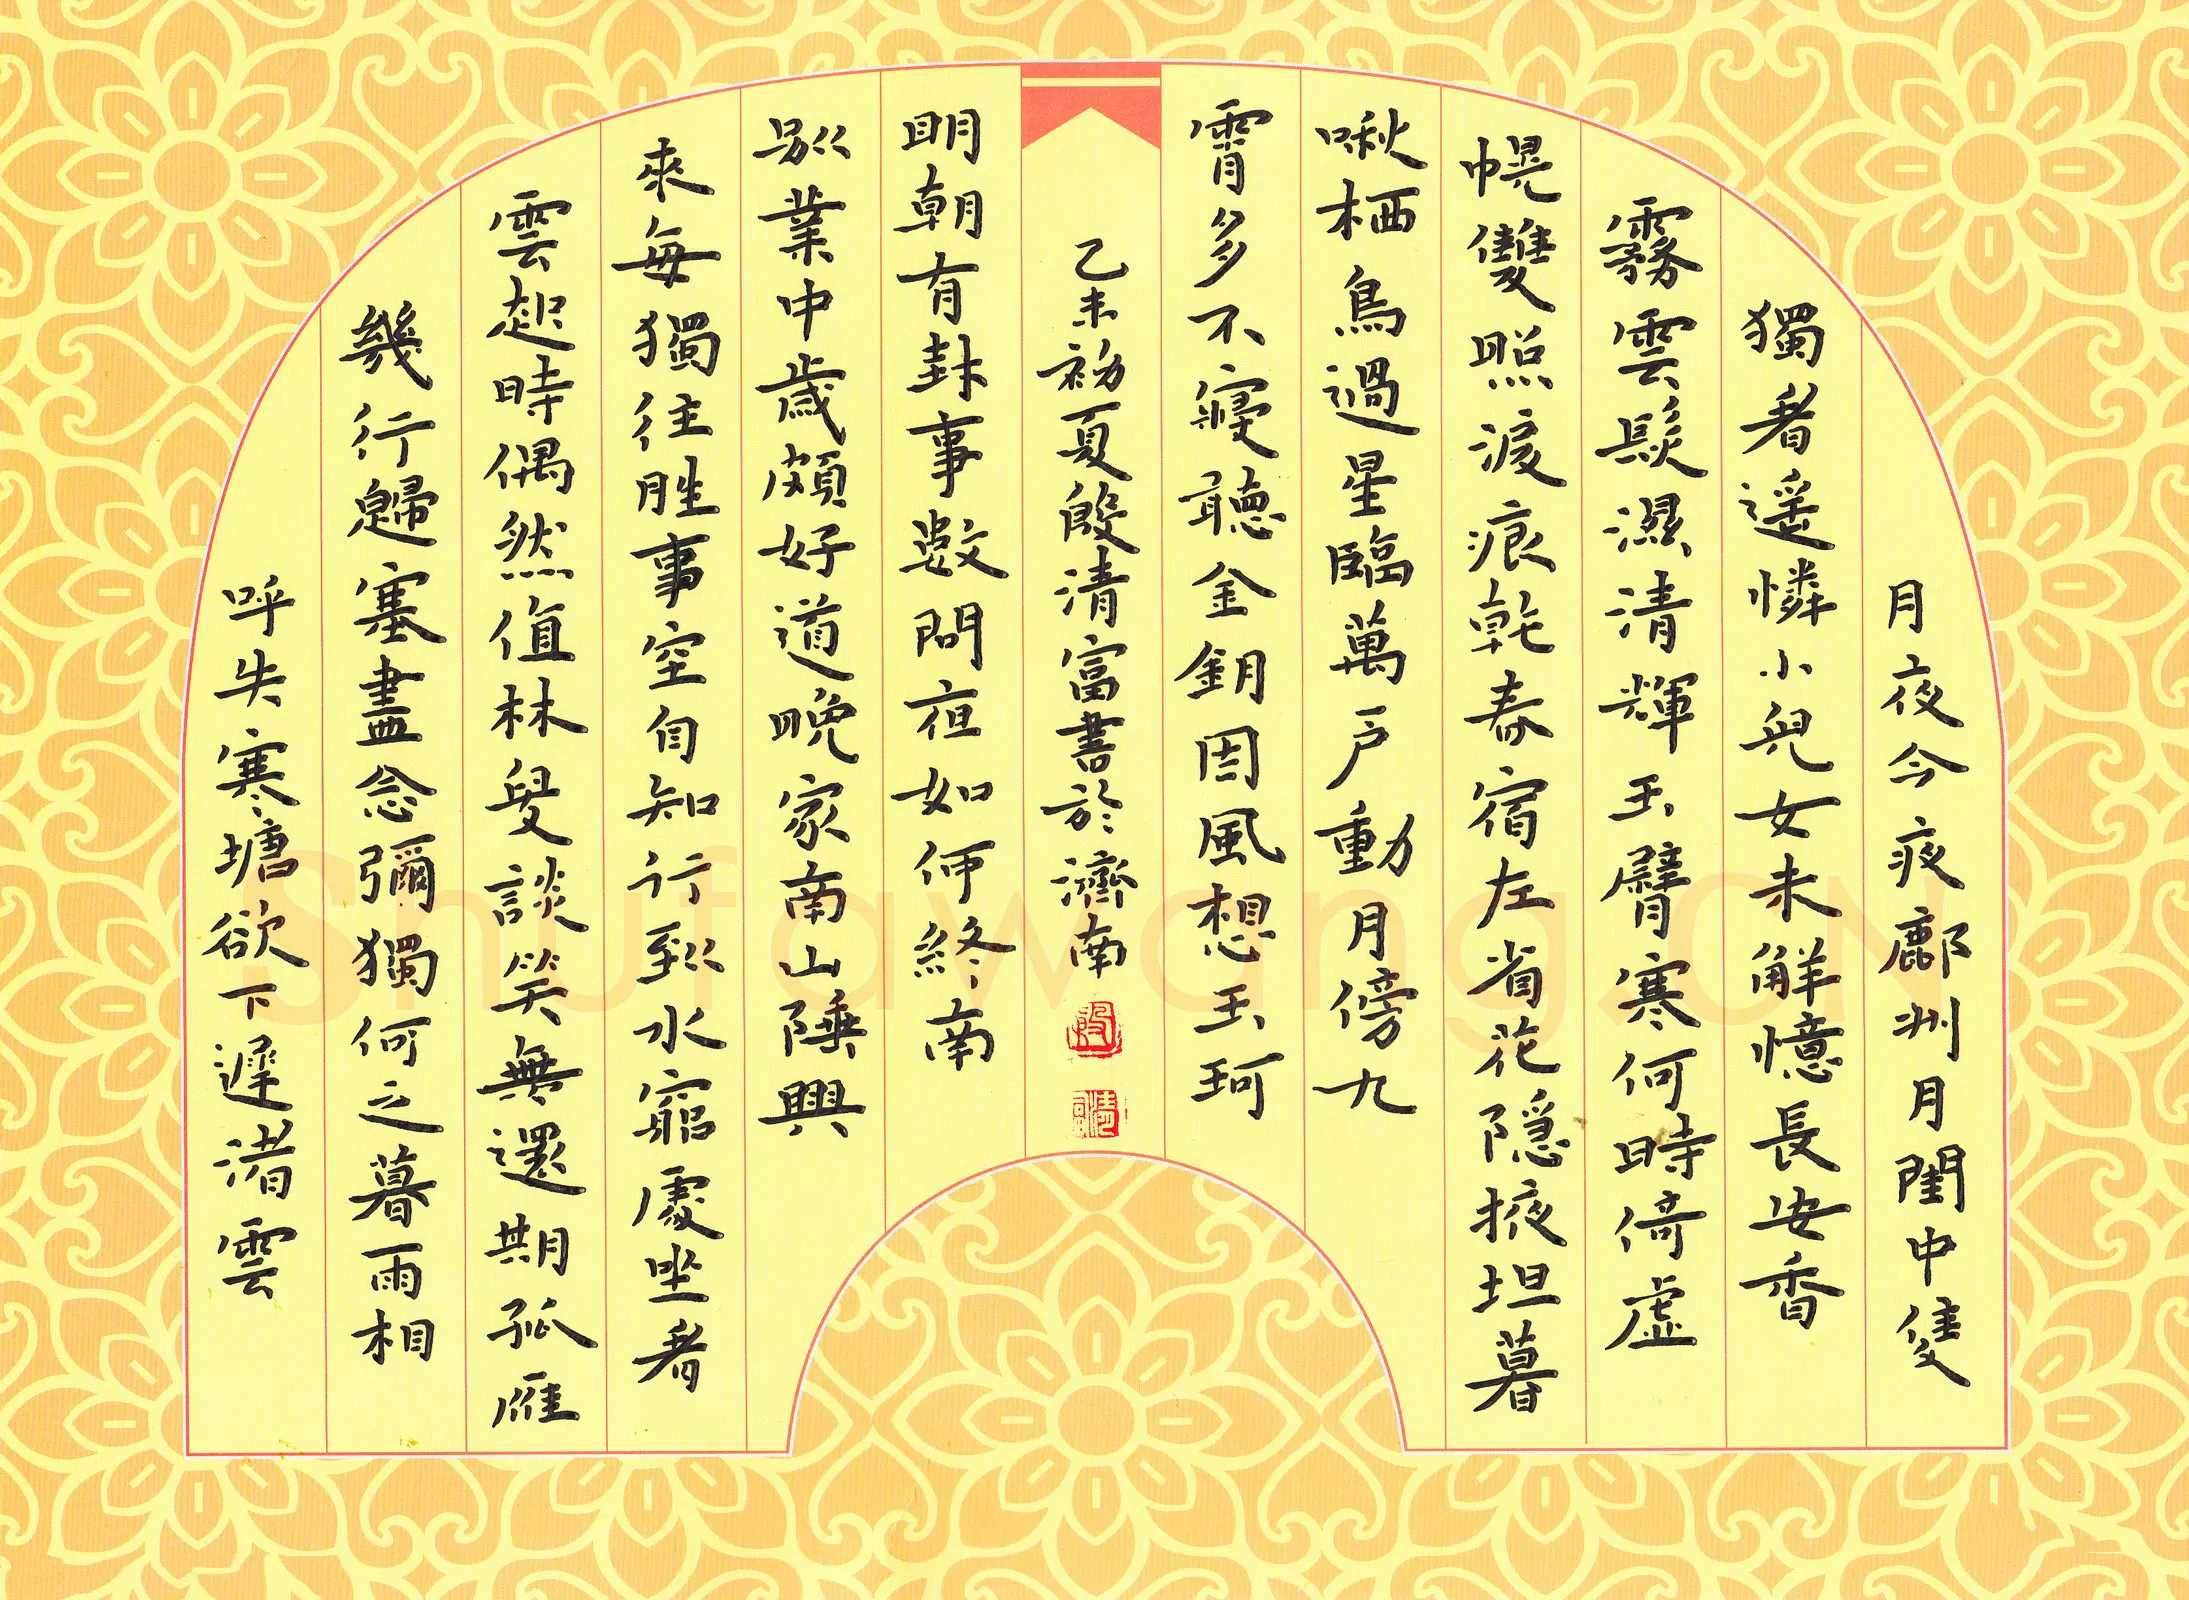 月夜今夜鄜州月閨中雙
獨看遥憐小兒女未解憶長安香
霧雲鬟濕清輝玉臂寒何時倚虛
幌雙照淚痕乾春宿左省花隱掖坦暮
啾栖鳥過星臨萬戶動月傍九
霄多不寢聽金鑰因風想玉珂
乙未初夏段清富書於濟南
明朝有封事數問夜如何終南
別業中歲頗好道晚家南山陲興
來每獨往勝事空自知行到水窮處坐看
雲起時偶然值林叟談笑無還期孤雁
幾行歸塞盡念彌獨何之暮雨相
呼失寒塘欲下遲渚雲
Shufawang.CN